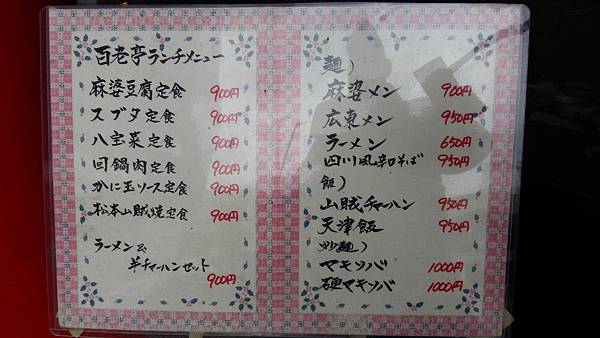 百老亭ランチメニュー
麻婆豆腐定食 900円
スブタ定食 900円
八宝菜定食 900円
回鍋肉定食 900円
かに玉ソース定食 900円
松本山賊焼定食 900円
ラーメン&
半チャーハンセット
900円
麺)
麻婆メン 900円
広東メン 950円
ラーメン 650円
四川風辛そば 950円
飯)
山賊チャーハン 950円
天津飯 950円
炒麺)
マキソバ 1000円
硬マキソバ 1000円